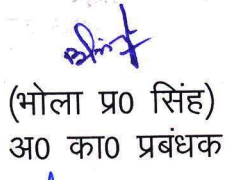 (भोला प्र0 सिंह)
अ0 का0 प्रबंधक